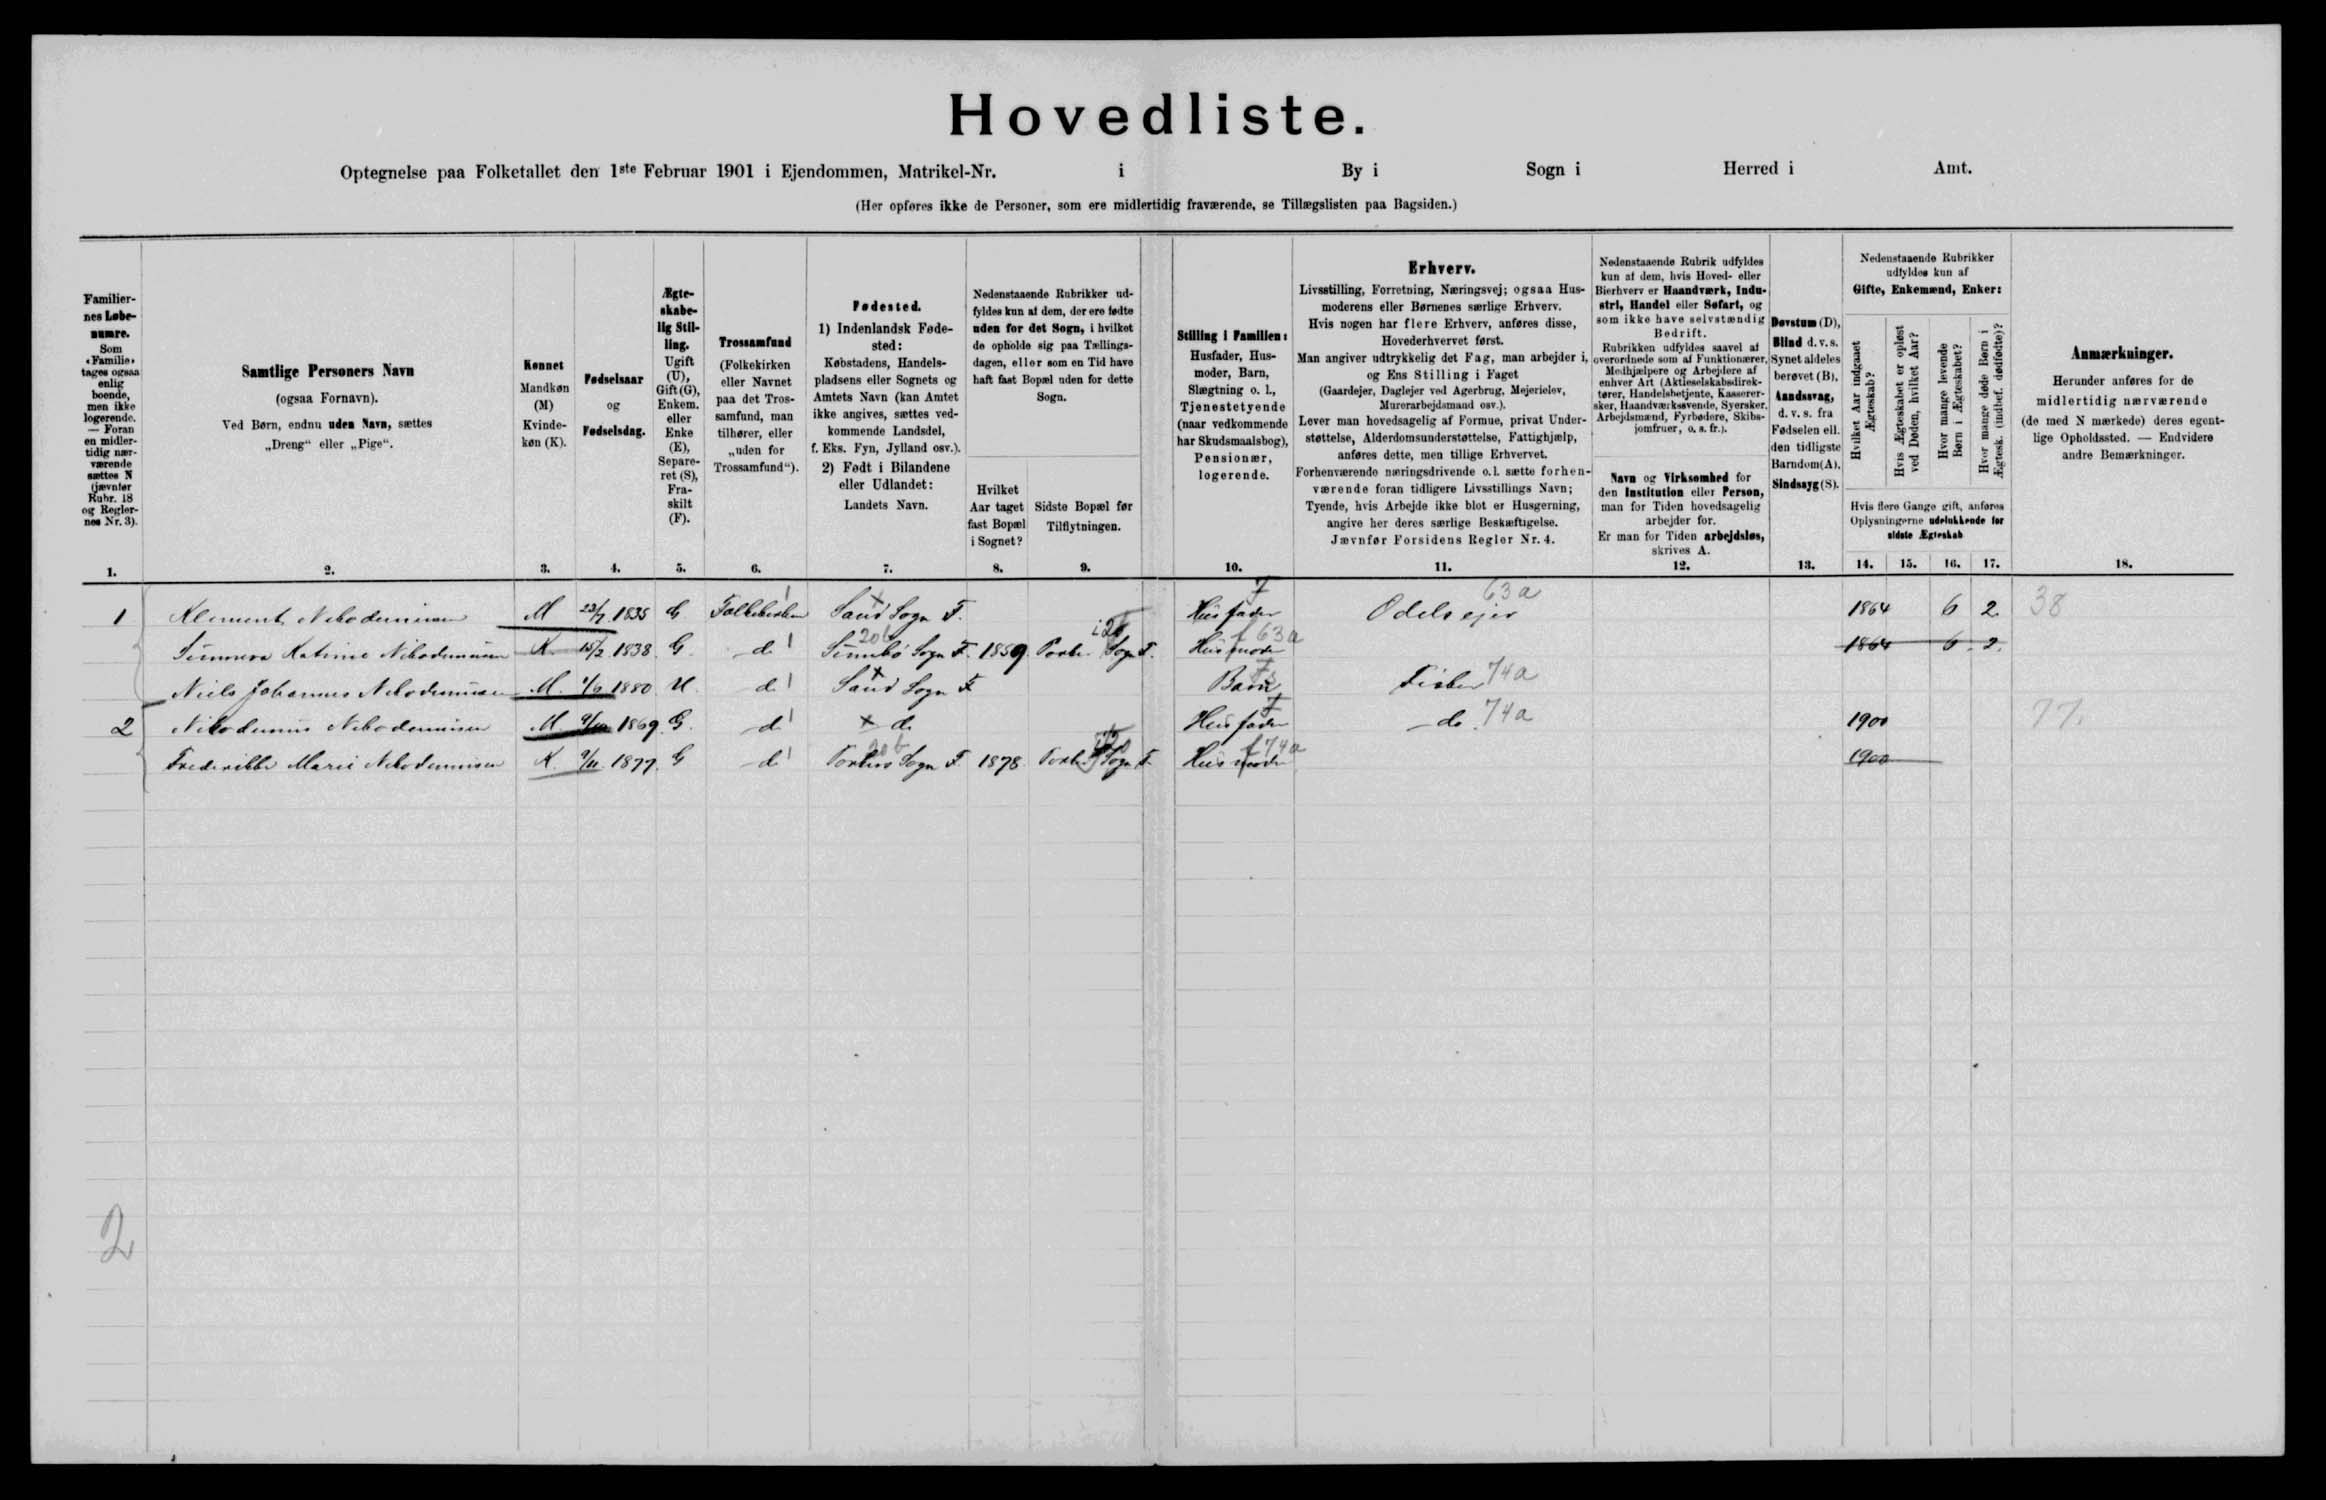 Hovedliste.
Optegnelse paa Folketallet den 1ste Februar 1901 i Ejendommen, Matrikel-Nr. i By i Sogn i Herred i Amt.
(Her opføres ikke de Personer, som ere midlertidig fraværende, se Tillægslisten paa Bagsiden.)
Familier-
nes Løbe-
numre.
Som
«Familie»
tages ogsaa
enlig
boende,
men ikke
logerende.
— Foran
en midler-
tidig nær-
værende
sættes N
(jævnfør
Rubr. 18
og Regler-
nes Nr. 3).
1.
Samtlige Personers Navn
(ogsaa Fornavn).
Ved Børn, endnu uden Navn, sættes
„Dreng“ eller „Pige“.
2.
Kønnet
Mandkøn
(M)
Kvinde-
køn (K).
3.
Fødselsaar
og
Fødselsdag.
4.
Ægte-
skabe-
lig Stil-
ling.
Ugift
(U),
Gift (G),
Enkem.
eller
Enke
(E),
Separe-
ret (S),
Fra-
skilt
(F).
5.
Trossamfund
(Folkekirken
eller Navnet
paa det Tros-
samfund, man
tilhører, eller
„uden for
Trossamfund“).
6.
Fødested.
1) Indenlandsk Føde-
sted:
Købstadens, Handels-
pladsens eller Sognets og
Amtets Navn (kan Amtet
ikke angives, sættes ved-
kommende Landsdel,
f. Eks. Fyn, Jylland osv.).
2) Født i Bilandene
eller Udlandet:
Landets Navn.
7.
Nedenstaaende Rubrikker ud-
fyldes kun af dem, der ere fødte
uden for det Sogn, i hvilket
de opholde sig paa Tællings-
dagen, eller som en Tid have
haft fast Bopæl uden for dette
Sogn.
Hvilket
Aar taget
fast Bopæl
i Sognet?
8.
Sidste Bopæl før
Tilflytningen.
9.
Stilling i Familien:
Husfader, Hus-
moder, Barn,
Slægtning o. l.,
Tjenestetyende
(naar vedkommende
har Skudsmaalsbog),
Pensionær,
logerende.
10.
Erhverv.
Livsstilling, Forretning, Næringsvej; ogsaa Hus-
moderens eller Børnenes særlige Erhverv.
Hvis nogen har flere Erhverv, anføres disse,
Hovederhvervet først.
Man angiver udtrykkelig det Fag, man arbejder i,
og Ens Stilling i Faget
(Gaardejer, Daglejer ved Agerbrug, Mejerielev,
Murerarbejdsmand osv.).
Lever man hovedsagelig af Formue, privat Under-
støttelse, Alderdomsunderstøttelse, Fattighjælp,
anføres dette, men tillige Erhvervet.
Forhenværende næringsdrivende o. l. sætte forhen-
værende foran tidligere Livsstillings Navn;
Tyende, hvis Arbejde ikke blot er Husgerning,
angive her deres særlige Beskæftigelse.
Jævnfør Forsidens Regler Nr. 4.
11.
Nedenstaaende Rubrik udfyldes
kun af dem, hvis Hoved- eller
Bierhverv er Haandværk, Indu-
stri, Handel eller Søfart, og
som ikke have selvstændig
Bedrift.
Rubrikken udfyldes saavel af
overordnede som af Funktionærer,
Medhjælpere og Arbejdere af
enhver Art (Aktieselskabsdirek-
tører, Handelsbetjente, Kasserer-
sker, Haandværkssvende, Syersker,
Arbejdsmænd, Fyrbødere, Skibs-
jomfruer, o. s. fr.).
Navn og Virksomhed for
den Institution eller Person,
man for Tiden hovedsagelig
arbejder for.
Er man for Tiden arbejdsløs,
skrives A.
12.
Døvstum (D),
Blind d. v. s.
Synet aldeles
berøvet (B),
Aandssvag,
d. v. s. fra
Fødselen ell.
den tidligste
Barndom (A),
Sindssyg (S).
13.
Nedenstaaende Rubrikker
udfyldes kun af
Gifte, Enkemænd, Enker:
Hvilket Aar indgaaet
Ægteskab?
Hvis Ægteskabet er opløst
ved Døden, hvilket Aar?
Hvor mange levende
Børn i Ægteskabet?
Hvor mange døde Børn i
Ægtesk. (indbef. dødfødte)?
Hvis flere Gange gift, anføres
Oplysningerne udelukkende for
sidste Ægteskab
14. 15. 16. 17.
Anmærkninger.
Herunder anføres for de
midlertidig nærværende
(de med N mærkede) deres egent-
lige Opholdssted. — Endvidere
andre Bemærkninger.
18.
1 Klement Nikodemusen M 23/7 1835 G Folkekirken 1 Sand Sogn F. Husfader Odelsejer 63a 1864 6 2 38
Sunneva Katrine Nikodemusen K. 15/2 1838. G. do 1 Sumbø Sogn F. 20b 1859. Porkr. Sogn F. Husmoder f 63a 1864 6. 2.
Niels Johannes Nikodemusen M. 1/6 1880 U. do 1 Sand Sogn F. Barn Fisker 74a
2 Nikodemus Nikodemusen M 1869. G. do 1 do Husfader do. 74a 1900 77.
Frederikke Marie Nikodemusen K. 9/11. 1877. G do 1 Porkeres Sogn F. 20b 1878. Porkr. Sogn F. Husmoder f 74a 1900
2